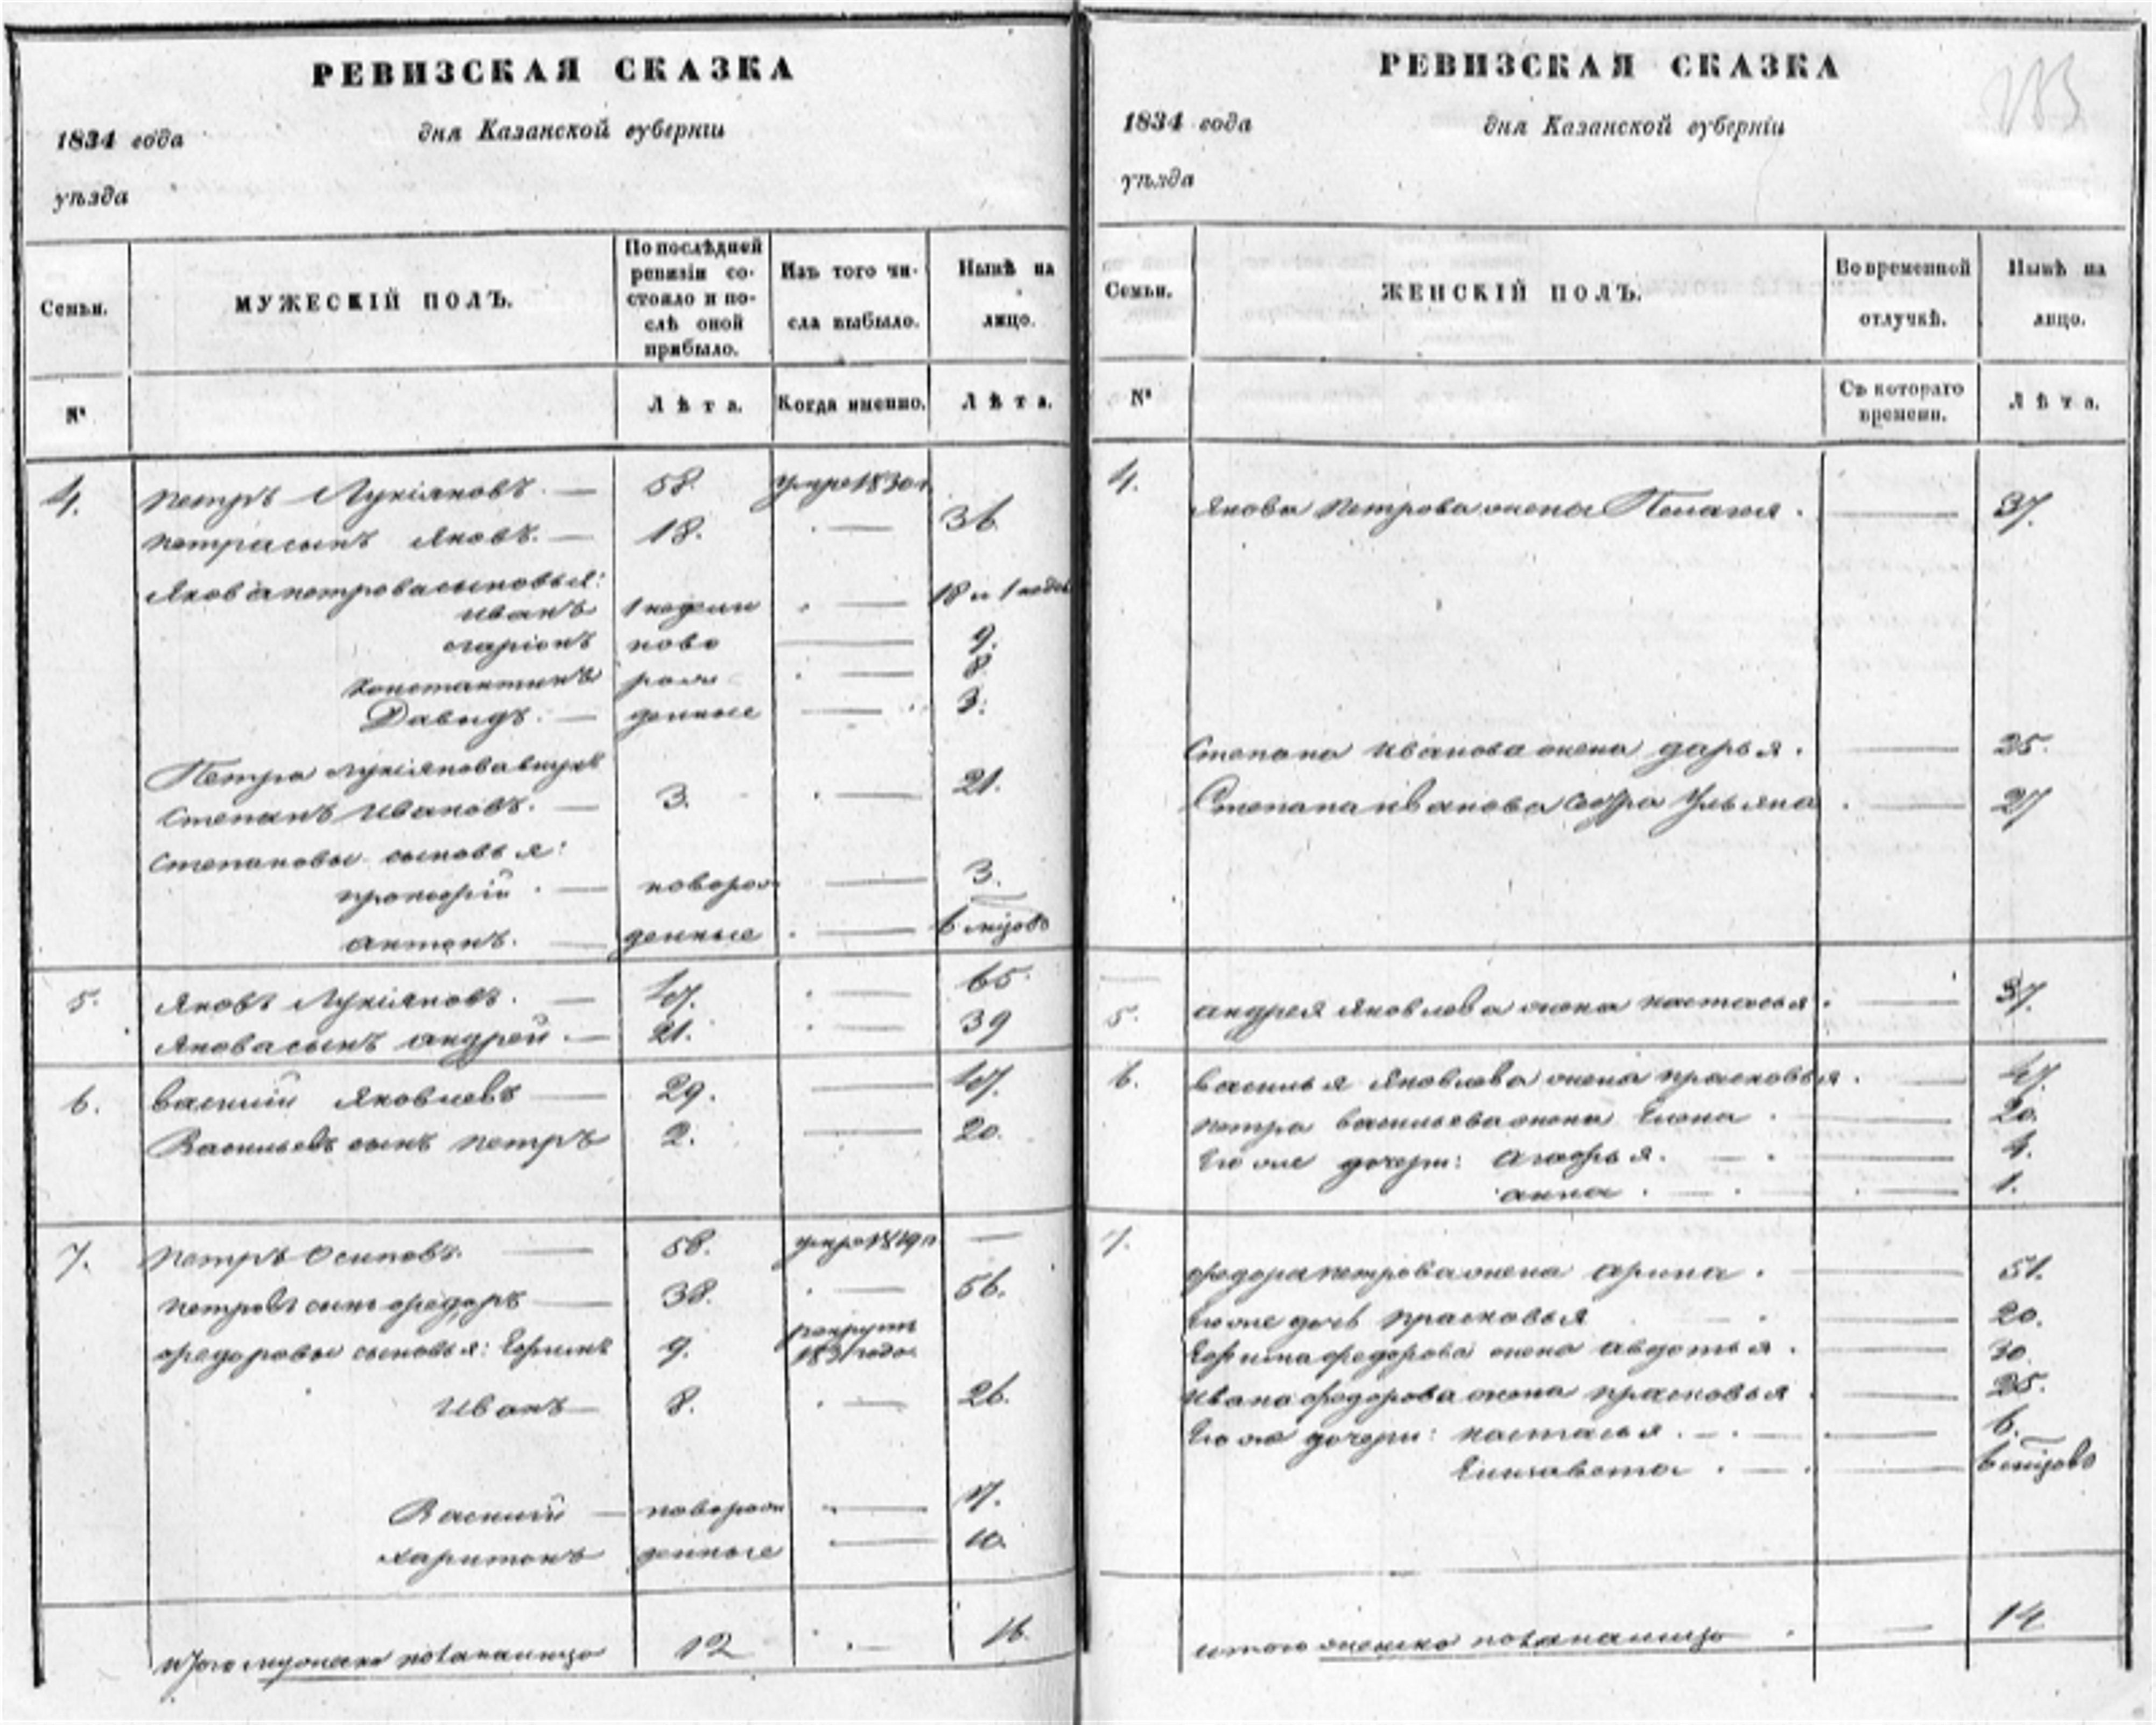 РЕВИЗСКАЯ СКАЗКА
1834 года дня Казанской губерніи
уѣзда
Семьи. МУЖЕСКІЙ ПОЛЪ. По послѣдней ревизіи состояло и послѣ оной прибыло. Изъ того числа выбыло. Нынѣ на лицо.
№ Лѣта. Когда именно. Лѣта.
4. Петръ Лукіяновъ. — 58. умре 1830 г.
Петра сынъ Яковъ. — 18. — 36.
Якова Петрова сыновья:
Иванъ 1 недели — 18 и 1 неде
Ларіонъ ново — 9.
Константинъ рож — 8
Давидъ. — денные — 3.
Петра Лукіянова внукъ
Степанъ Ивановъ. — 3. — 21.
Степановы сыновья:
Прокофій. — новорож — 3.
Антонъ. — денные — 6 мѣсяцовъ
5. Яковъ Лукіяновъ. — 47. — 65.
Якова сынъ Андрей. — 21. — 39
6. Василій Яковлевъ — 29. — 47.
Васильевъ сынъ Петръ 2. — 20.
7. Петръ Осиповъ. — 58. умре 1819 г. —
Петровъ сынъ Федоръ — 38. — 56.
Федоровы сыновья: Ефимъ 9. рекрутъ 1831 года
Иванъ — 8. — 26.
Василій — новорож — 17.
Харитонъ денные — 10.
Итого мужеска пола на лицо 12 — 16.
РЕВИЗСКАЯ СКАЗКА
183
1834 года дня Казанской губерніи
уѣзда
Семьи. ЖЕНСКІЙ ПОЛЪ. Во временной отлучкѣ. Нынѣ на лицо.
№ Съ котораго времени. Лѣта.
4. Якова Петрова жена Пелагея. — 37.
Степана Иванова жена Дарья. — 25.
Степана Иванова сестра Ульяна. — 27
5. Андрея Яковлева жена Настасья. — 37.
6. Василья Яковлева жена Прасковья. — 47.
Петра Васильева жена Елена. — 20.
Его же дочери: Агафья. — 4.
Анна. — 1.
7. Федора Петрова жена Арина. — 51.
Его же дочь Прасковья — 20.
Ефима Федорова жена Авдотья. — 30.
Ивана Федорова жена Прасковья — 25.
Его же дочери: Настасья. — 6.
Елизавета. — 6 мѣсяцовъ
Итого женска пола на лицо. — 14